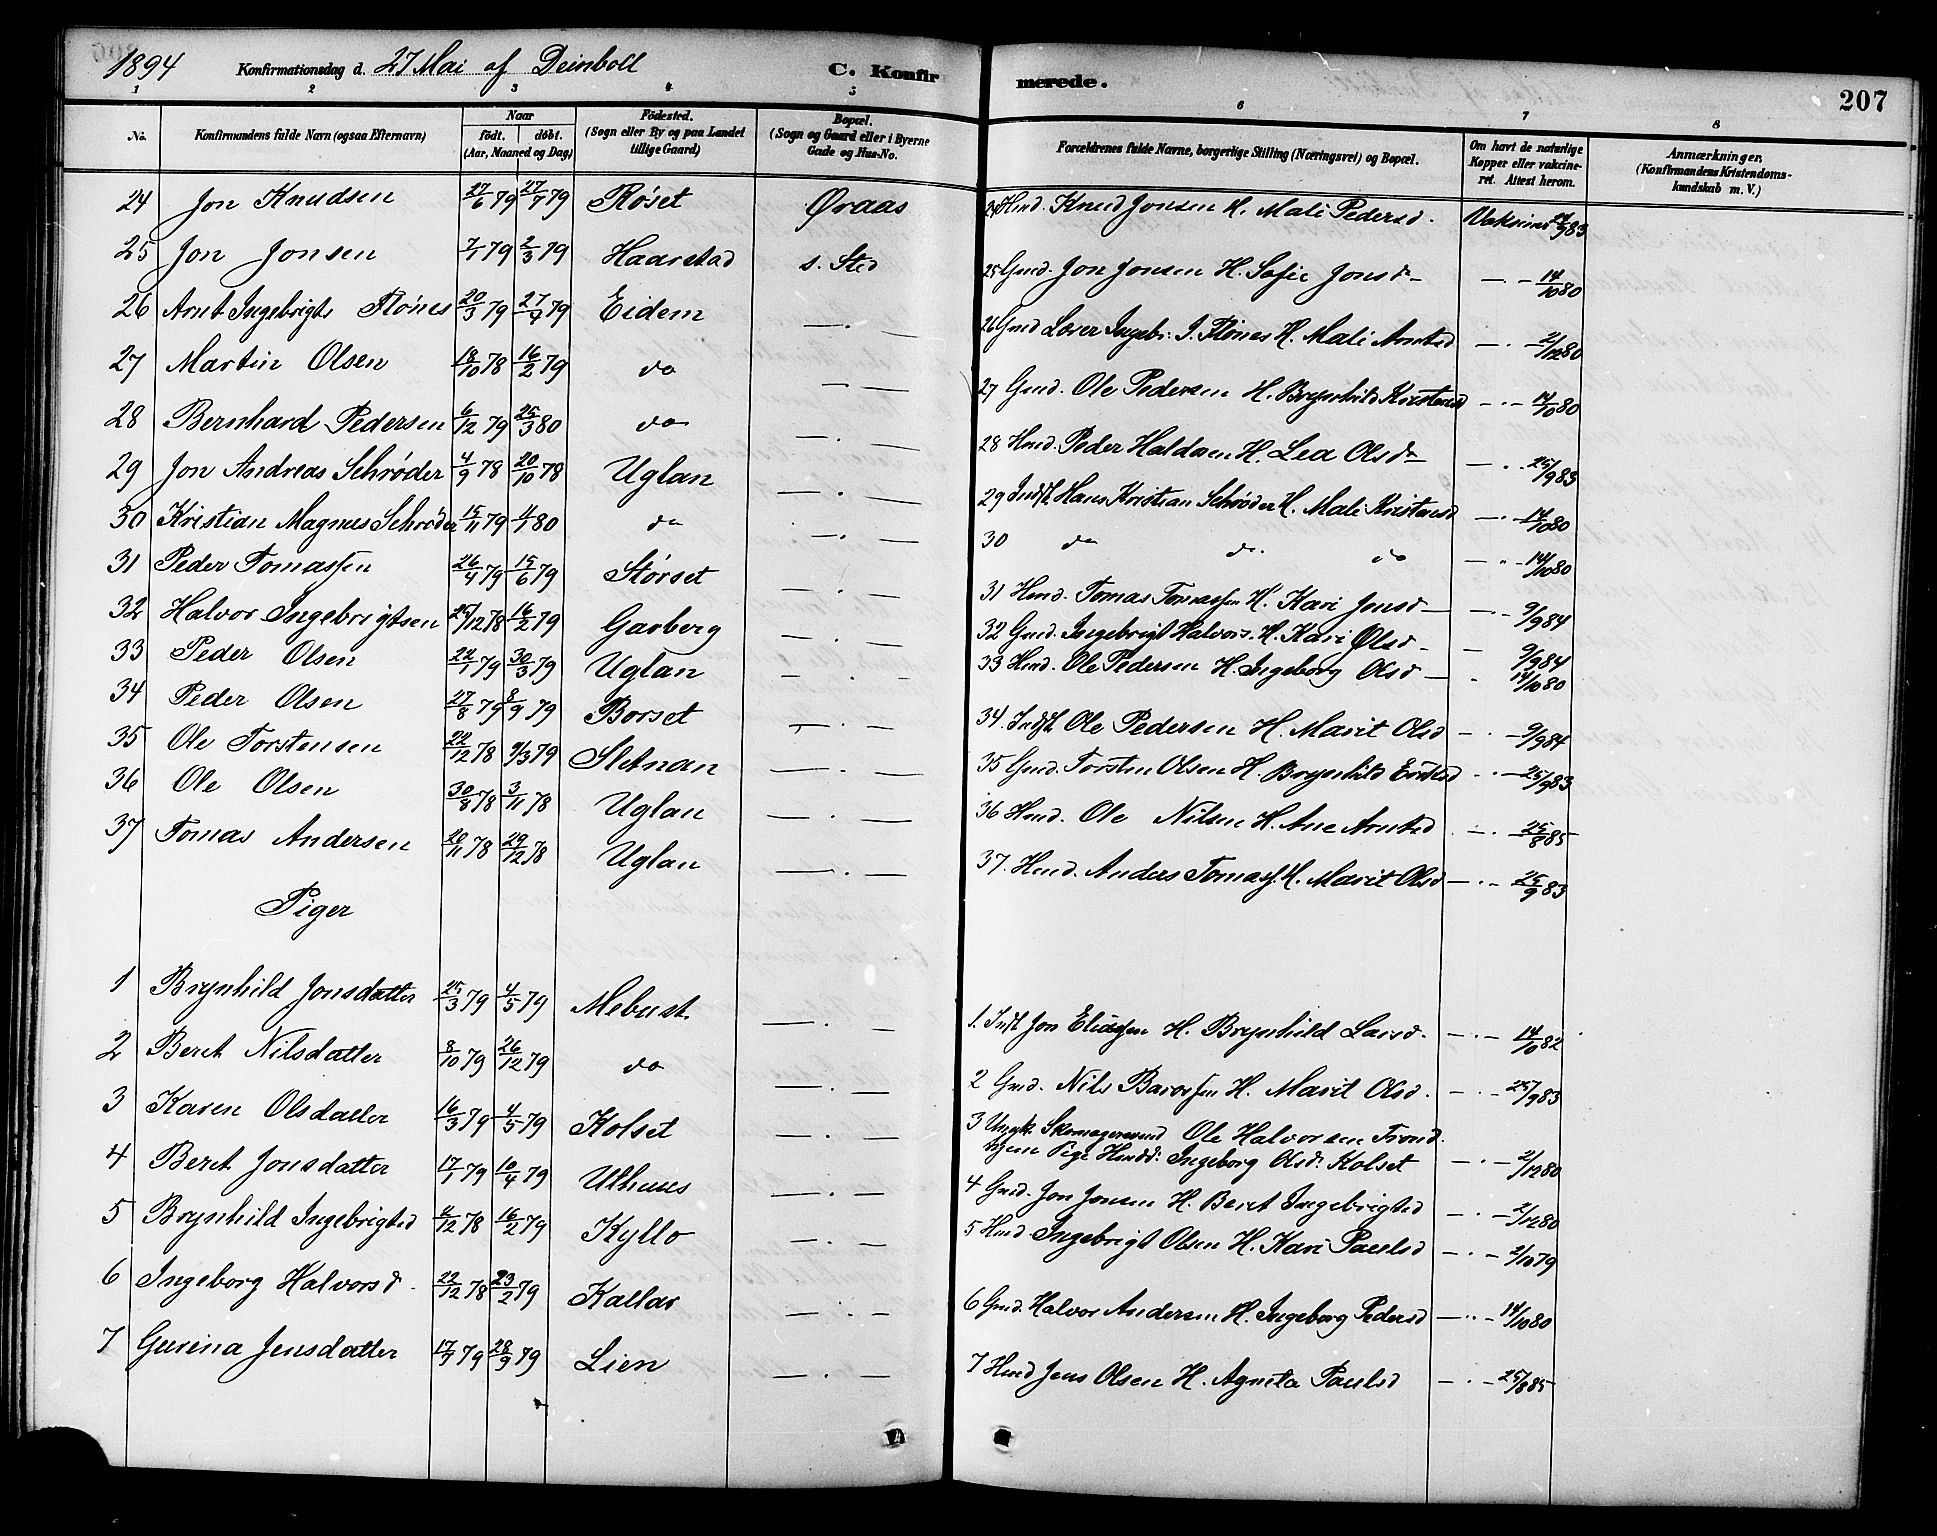 1894 Konfirmationsdag d. 27 Mai af Deinboll C. Konfirmerede. 207
1 2 3 4 5 6 7 8
No. Konfirmandens fulde Navn (ogsaa Efternavn) Naar født. døbt. (Aar, Maaned og Dag) Fødested. (Sogn eller By og paa Landet tillige Gaard) Bopæl. (Sogn og Gaard eller i Byerne Gade og Hus-No. Forældrenes fulde Navne, borgerlige Stilling (Næringsvei) og Bopæl. Om havt de naturlige Kopper eller vakcineret. Attest herom. Anmærkninger. (Konfirmandens Kristendomskundskab m. V.)
24 Jon Knudsen 27/6 79 27/7 79 Røset Øraas 24 Hmd. Knud Jonsen H. Mali Pedersd. Vaksine 24/9 83
25 Jon Jonsen 7/1 79 2/3 79 Haarstad s. Sted 25 Gmd. Jon Jonsen H. Sofie Jonsdr — . — 14/10 80
26 Arnt Ingebrigts Flønes 20/3 79 27/4 79 Eidem — . — 26 Gmd Lærer Ingebr. J. Flønes H. Mali Arntsd — . — 2/12 80
27 Martin Olsen 18/10 78 16/2 79 do — . — 27 Gmd. Ole Pedersen H. Brynhild Kristensd — . — 14/10 80
28 Bernhard Pedersen 6/12 79 25/3 80 do — . — 28 Hmd. Peder Haldosen H. Lea Olsdr — . — 25/9 83
29 Jon Andreas Schrøder 4/9 78 20/10 78 Uglan — . — 29 Indst. Hans Kristian Schrøder H. Mali Kristensd — . — 14/10 80
30 Kristian Magnus Schrøder 15/11 79 4/1 80 do — . — 30 do do do — . — 14/10 80
31 Peder Tomassen 26/4 79 15/6 79 Størset — . — 31 Hmd. Tomas Tomassen H. Kari Jonsd — . — 9/9 84
32 Halvor Ingebrigtsen 25/12 78 16/2 79 Garberg — . — 32 Gmd. Ingebrigt Halvors. H. Kari Olsd — 9/9 84
33 Peder Olsen 22/1 79 30/3 79 Uglan — . — 33 Hmd. Ole Pedersen H. Ingeborg Olsd — . 14/10 80
34 Peder Olsen 27/8 79 8/9 79 Borset — . — 34. Indst Ole Pedersen H. Marit Olsd — . — 9/9 84
35 Ole Torstensen 22/12 78 9/3 79 Sletnan — . — 35 Gmd. Torsten Olsen H. Brynhild Eriksd — . — 25/9 83
36 Ole Olsen 30/8 78 3/11 78 Uglan — . — 36 Hmd. Ole Nilsen H. Ane Arntsd — . — 25/8 85
37 Tomas Andersen 20/11 78 29/12 78 Uglan — . — 37. Hmd. Anders Tomass. H. Marit Olsd — . — 25/9 83
Piger
1 Brynhild Jonsdatter 25/3 79 4/5 79 Mebust — . — 1. Indst Jon Eliassen H. Brynhild Larsd. — . — 14/10 82
2 Beret Nilsdatter 8/10 79 26/12 79 do — . — 2 Gmd. Nils Barossen H. Marit Olsd. — . — 25/9 83
3 Karen Olsdatter 16/3 79 4/5 79 Kolset — . — 3 Ungk. Skomagersvend Ole Halvorsen Trond
hjem Pige Ingeborg Olsd: Kolset — . — 2/12 80
4 Beret Jonsdatter 17/1 79 10/4 79 Ulhuus — . — 4 Gmd. Jon Jonsen H. Beret Ingebrigtsd — . — 2/12 80
5 Brynhild Ingebrigtsd 4/12 78 16/2 79 Kyllo — . — 5 Hmd Ingebrigt Olsen H. Kari Paulsd — . — 2/10 79
6 Ingeborg Halvorsd. 22/12 78 23/2 79 Kallar — . — 6 Gmd. Halvor Andersen H. Ingeborg Pedersd — . — 14/10 80
7 Gurina Jensdatter 17/7 79 28/9 79 Lien — . — 7 Hmd Jens Olsen H. Agneta Paulsd — . — 25/8 85